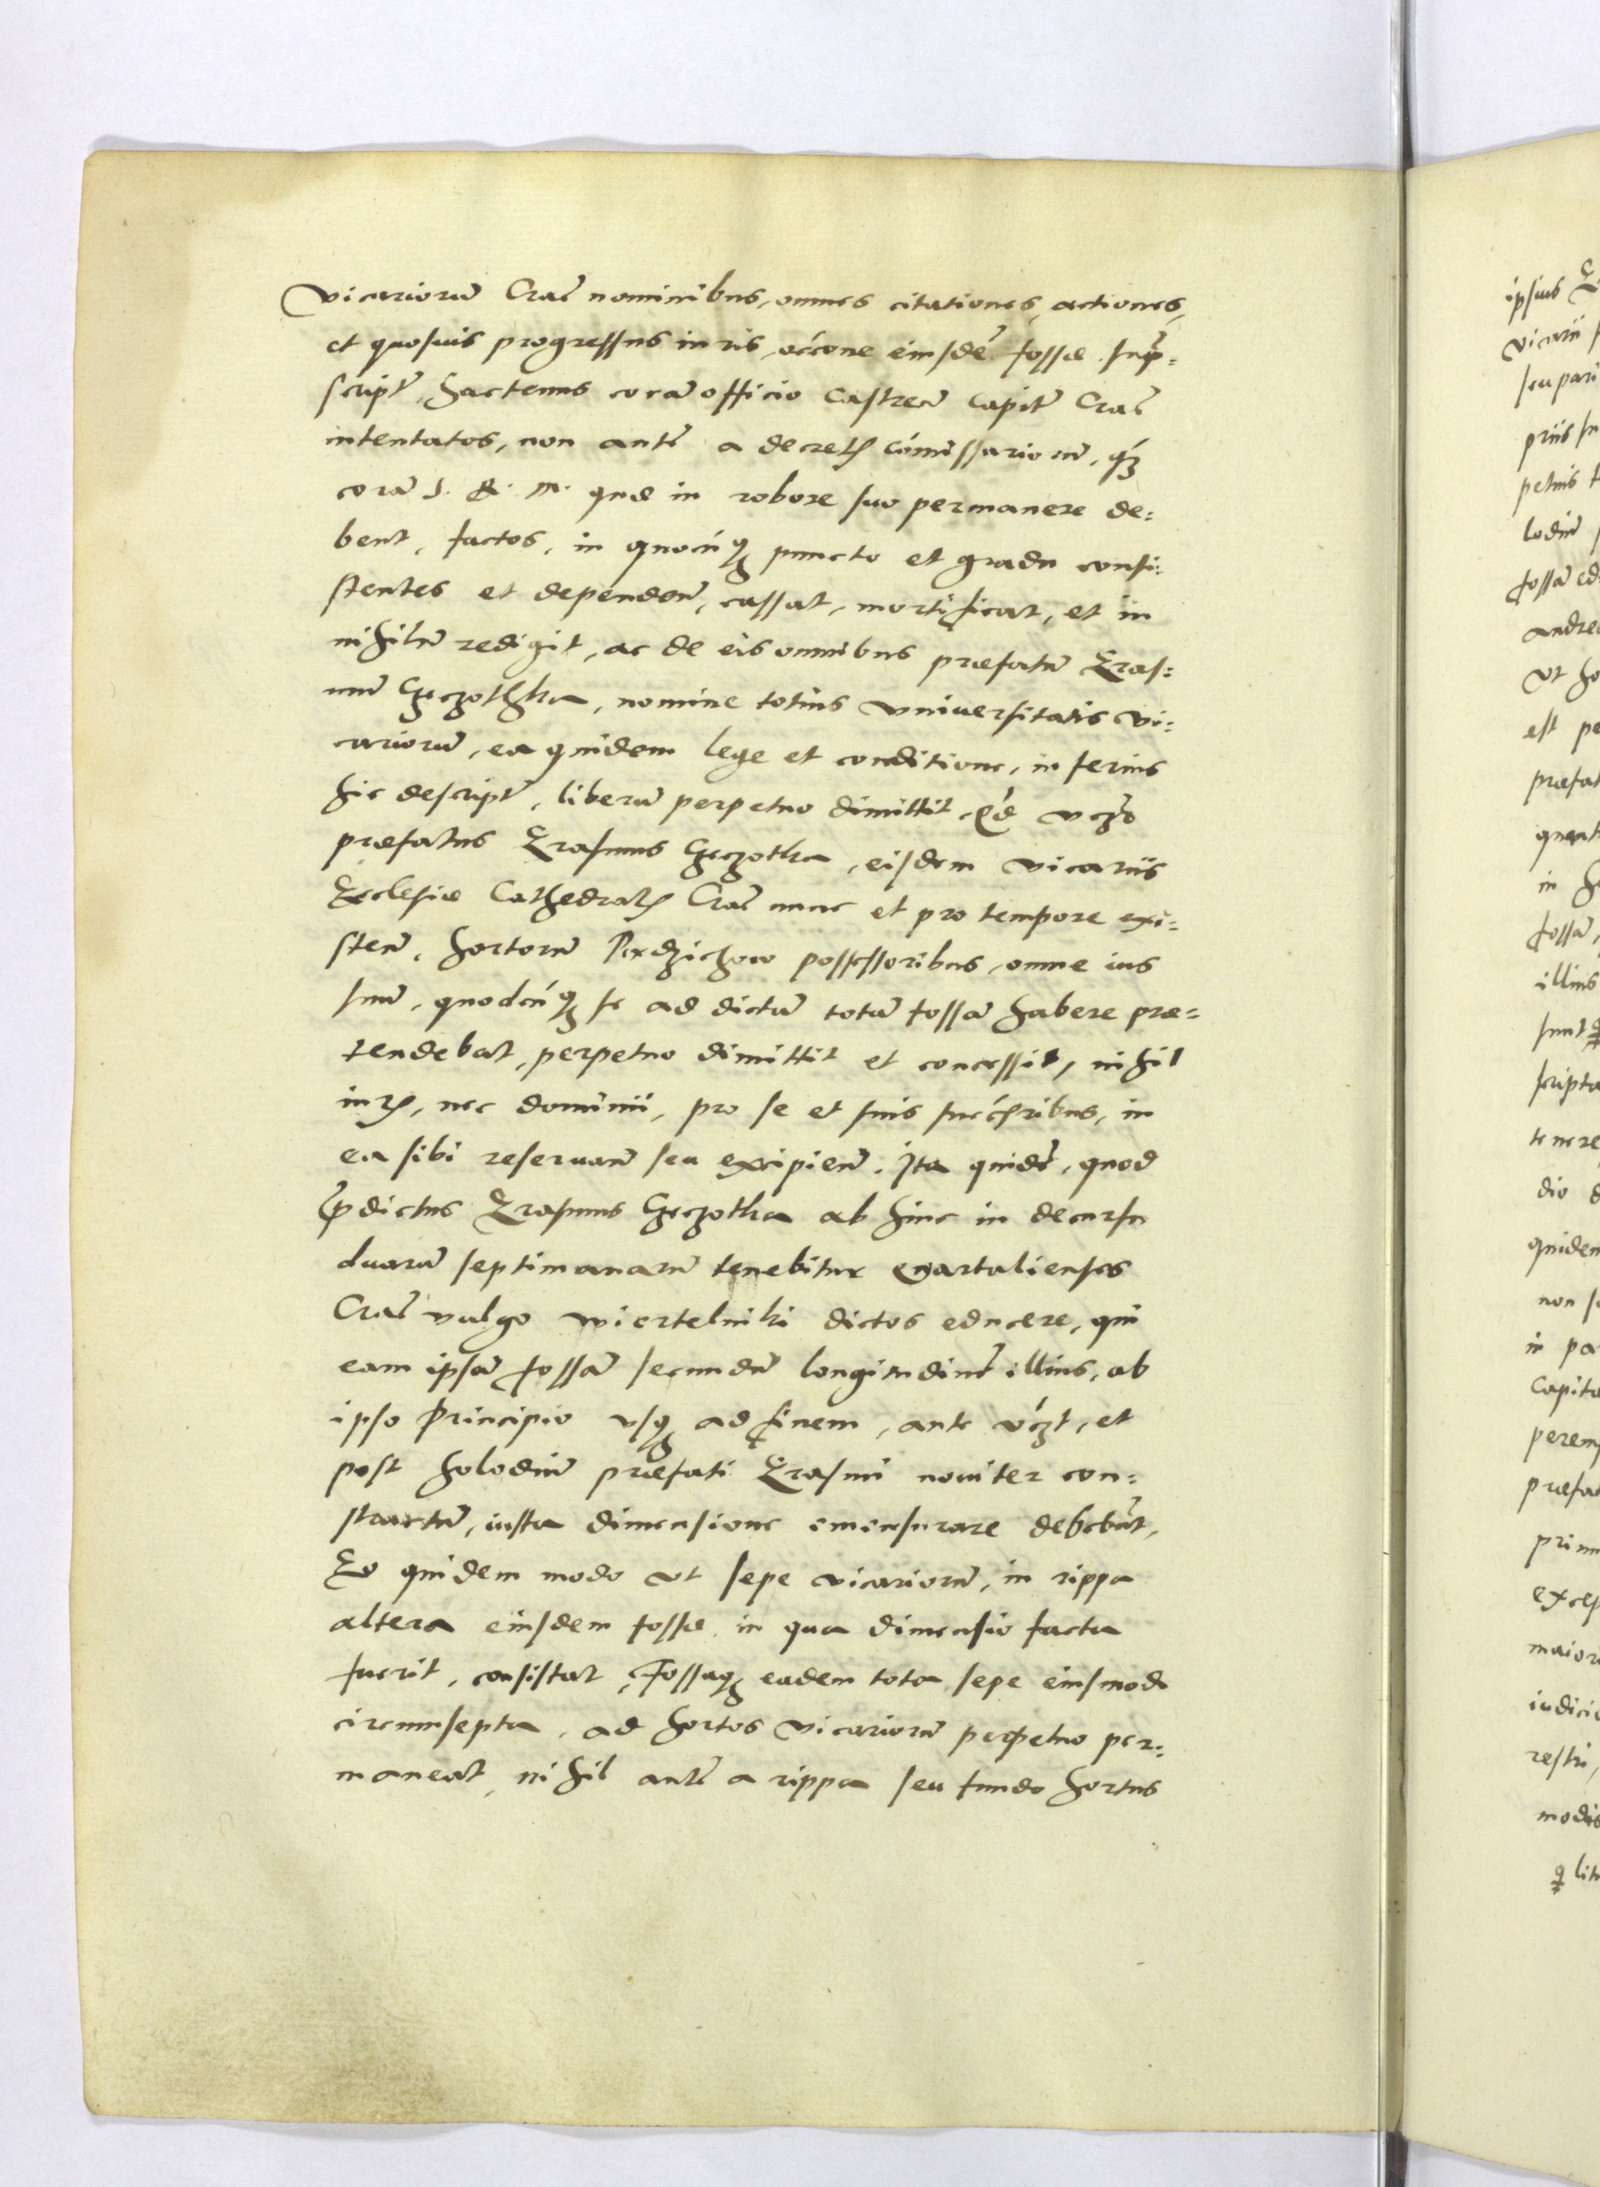 vicariorũ Crac̃ nominibus, omnes citationes, actiones,
et quosuis progressus iuris, occõne eiusdẽ fossæ sup̃=
script̃, hactenus corã officio Castreñ Capit̃ Crac̃
intentatos, non autẽ a decret͠ Com̃issariorũ, q̃
corã S. R. M. quæ in robore suo permanere de=
bent, factos, in quocũq₃ puncto et gradu consi=
stentes et dependeñ, cassat, mortificat, et in
nihilũ redigit, ac de eis omnibus præfatũ Eras=
mũ Czeczothka, nomine totius vniuersitatis vi=
cariorũ, ea quidem lege et conditione, inferius
hic descript̃, liberũ perpetuo dimittit, Qđ vczo
præfatus Erasmus Czeczotka, eisdem vicariis
Ecclesiæ Cathedral͠ Crac̃ nunc et pro tempore exi=
steñ, hortorũ possessoribus, omne ius
suũ, quodcũq₃ se ad dictã totã fossã habere præ=
tendebat, perpetuo dimittit et concessit, nihil
iur͠, nec dominii, pro se et suis succ̃ribus, in
ea sibi reseruañ seu excipieñ. Ita quidẽ, quod
p̃dictus Erasmus Czeczotka ab hinc in decursu
duarũ septimanarũ tenebitur quartalienses
Crac̃ vulgo wiertelniki dictos educere, qui
eam ipsã fossã secundũ longitudinẽ illius, ab
ipso Principio vsq₃ ad finem, ante vczt, et
post holodiũ præfati Erasmi nouiter con=
structũ, iusta dimensione emensurare debebũt,
Eo quidem modo vt sepe vicariorũ, in rippa
altera eiusdem fossæ in qua dimensio facta
fuerit, consistat, Fossaq₃ eadem tota, sepe eiusmodi
circumsepta, ad hortos vicariorũ perpetuo per=
maneat, nihil autẽ a rippa seu fundo hortus
ipsius
vicarii
seu pari
priis
petuis
lodiũ
fossã ed
andre
vt ho
est pe
præfat
in
fossã,
illius
sunt
scripta
tenere
dio
quidem
non
in pa
Capita
perem
præfat
prim
excep
maiori
iudici
restri,
modis
lit